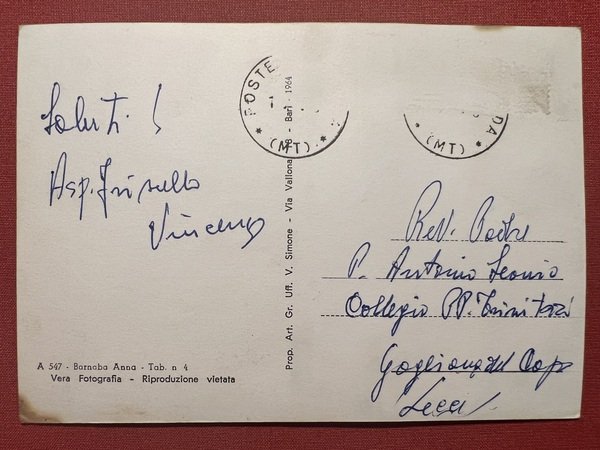 Saluti!
Asp. Frisullo
Vincenzo
POSTE
(MT)
DA
(MT)
Prop. Art. Gr. Uff. V. Simone - Via Vallona - Bari - 1964
Rev. Padre
P. Antonio Leonio
Collegio PP. Trinitari
Gagliano del Capo
Lecce
A 547 - Barnaba Anna - Tab. n 4
Vera Fotografia - Riproduzione vietata